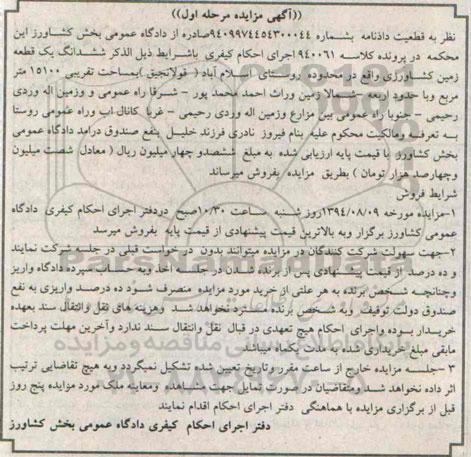 ((آگهی مزایده مرحله اول))
نظر به قطعیت دادنامه بشماره ۹۴۰۹۹۷۴۴۵۴۳۰۰۰۴۴صادره از دادگاه عمومی بخش کشاورز این
محکمه در پرونده کلاسه ۹۴۰۰۶۱ اجرای احکام کیفری باشرایط ذیل الذکر ششدانگ یک قطعه
زمین کشاورزی واقع در محدوده روستای اسلام آباد ( قولانجیق )بمساحت تقریبی ۱۵۱۰۰ متر
مربع وبا حدود اربعه -شمالا زمین وراث احمد محمد پور - شرقا راه عمومی و وزمین اله وردی
رحیمی - جنوبا راه عمومی بین مزارع وزمین اله وردی رحیمی - غربا کانال اب وراه عمومی روستا
به تعرفه ومالکیت محکوم علیه بنام فیروز نادری فرزند خلیل بنفع صندوق درامد دادگاه عمومی
بخش کشاورز با قیمت پایه ارزیابی شده به مبلغ ششصدو چهار میلیون ریال ( معادل شصت میلیون
وچهارصد هزار تومان ) بطریق مزایده بفروش میرساند
شرایط فروش
۱-مزایده مورخه ۱۳۹۴/۰۸/۰۹روز شنبه ساعت ۱۰/۳۰صبح دردفتر اجرای احکام کیفری دادگاه
عمومی کشاورز برگزار وبه بالاترین قیمت پیشنهادی از قیمت پایه بفروش میرسد
۲-جهت سهولت شرکت کنندگان در مزایده میتوانند بدون در خواست قبلی در جلسه شرکت نمایند
و ده درصد از قیمت پیشنهادی پس از برنده شدن در جلسه اخذ وبه حساب سپرده دادگاه واریز
وچنانچه شخص برنده به هر علتی از خرید مورد مزایده منصرف شود ده درصد واریزی به نفع
صندوق دولت توقیف وبه شخص برنده مسترد نخواهد شد وهزینه های نقل وانتقال سند بعهده
خریدار بوده واجرای احکام هیچ تعهدی در قبال نقل وانتقال سند ندارد وآخرین مهلت پرداخت
مابقی مبلغ خریداری شده به مدت یکماه میباشد
۳-جلسه مزایده خارج از ساعت مقرر وتاریخ تعیین شده تشکیل نمیگردد وبه هیچ تقاضایی ترتیب
اثر داده نخواهد شد ومتقاضیان در صورت تمایل جهت مشاهده ومعاینه ملک مورد مزایده پنج روز
قبل از برگزاری مزایده با هماهنگی دفتر اجرای احکام اقدام نمایند
دفتر اجرای احکام کیفری دادگاه عمومی بخش کشاورز